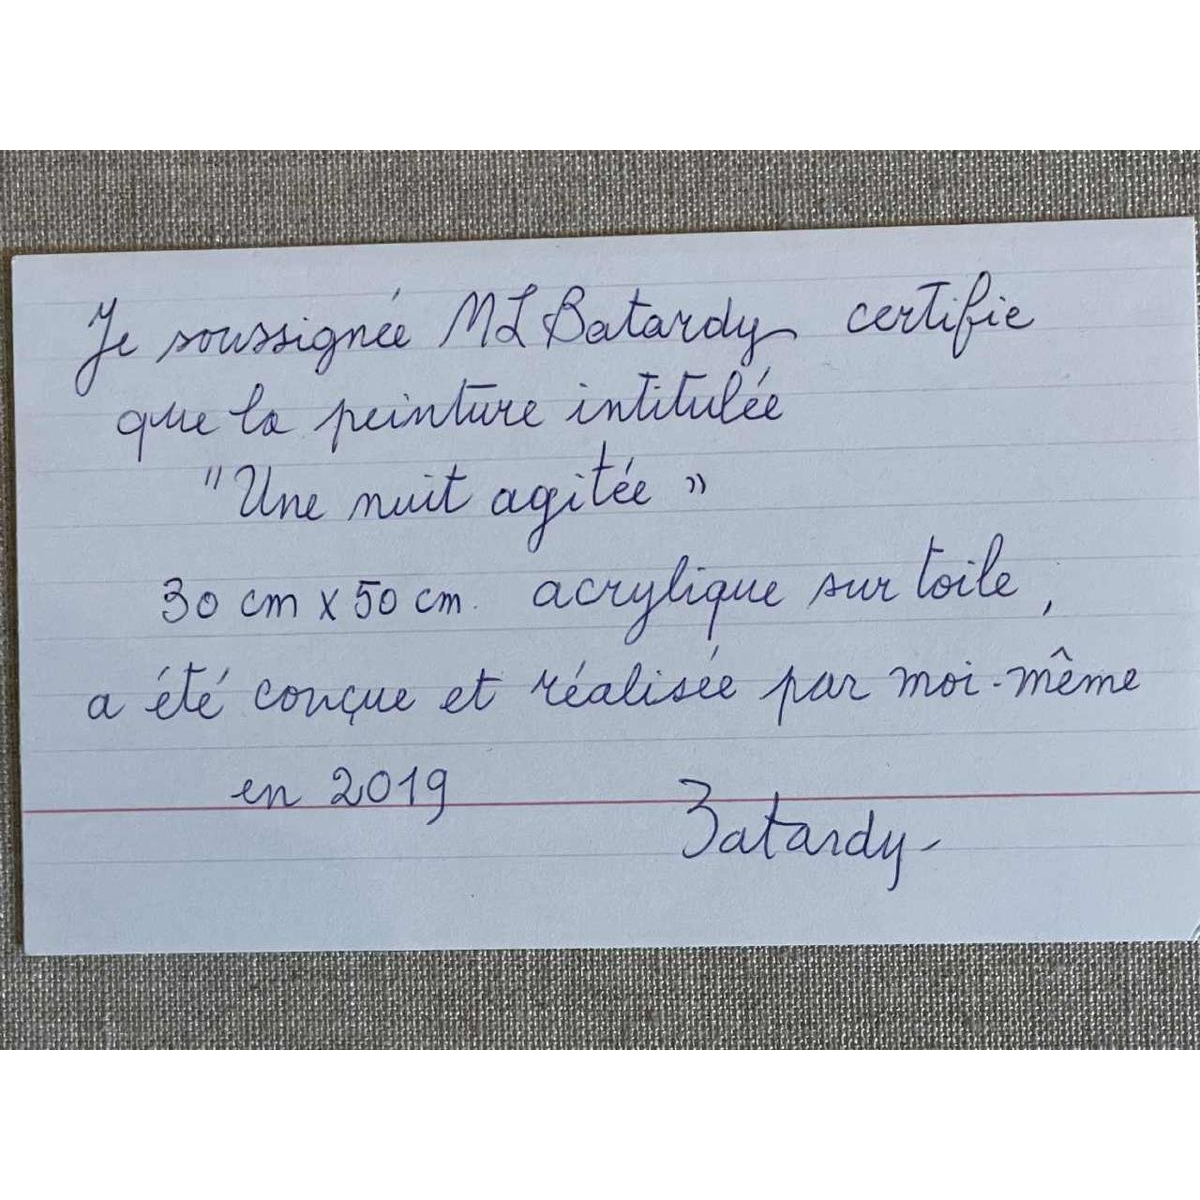 Je soussignée ML Batardy certifie
que la peinture intitulée
"Une nuit agitée"
30 cm x 50 cm. acrylique sur toile,
a été conçue et réalisée par moi-même
en 2019
Batardy